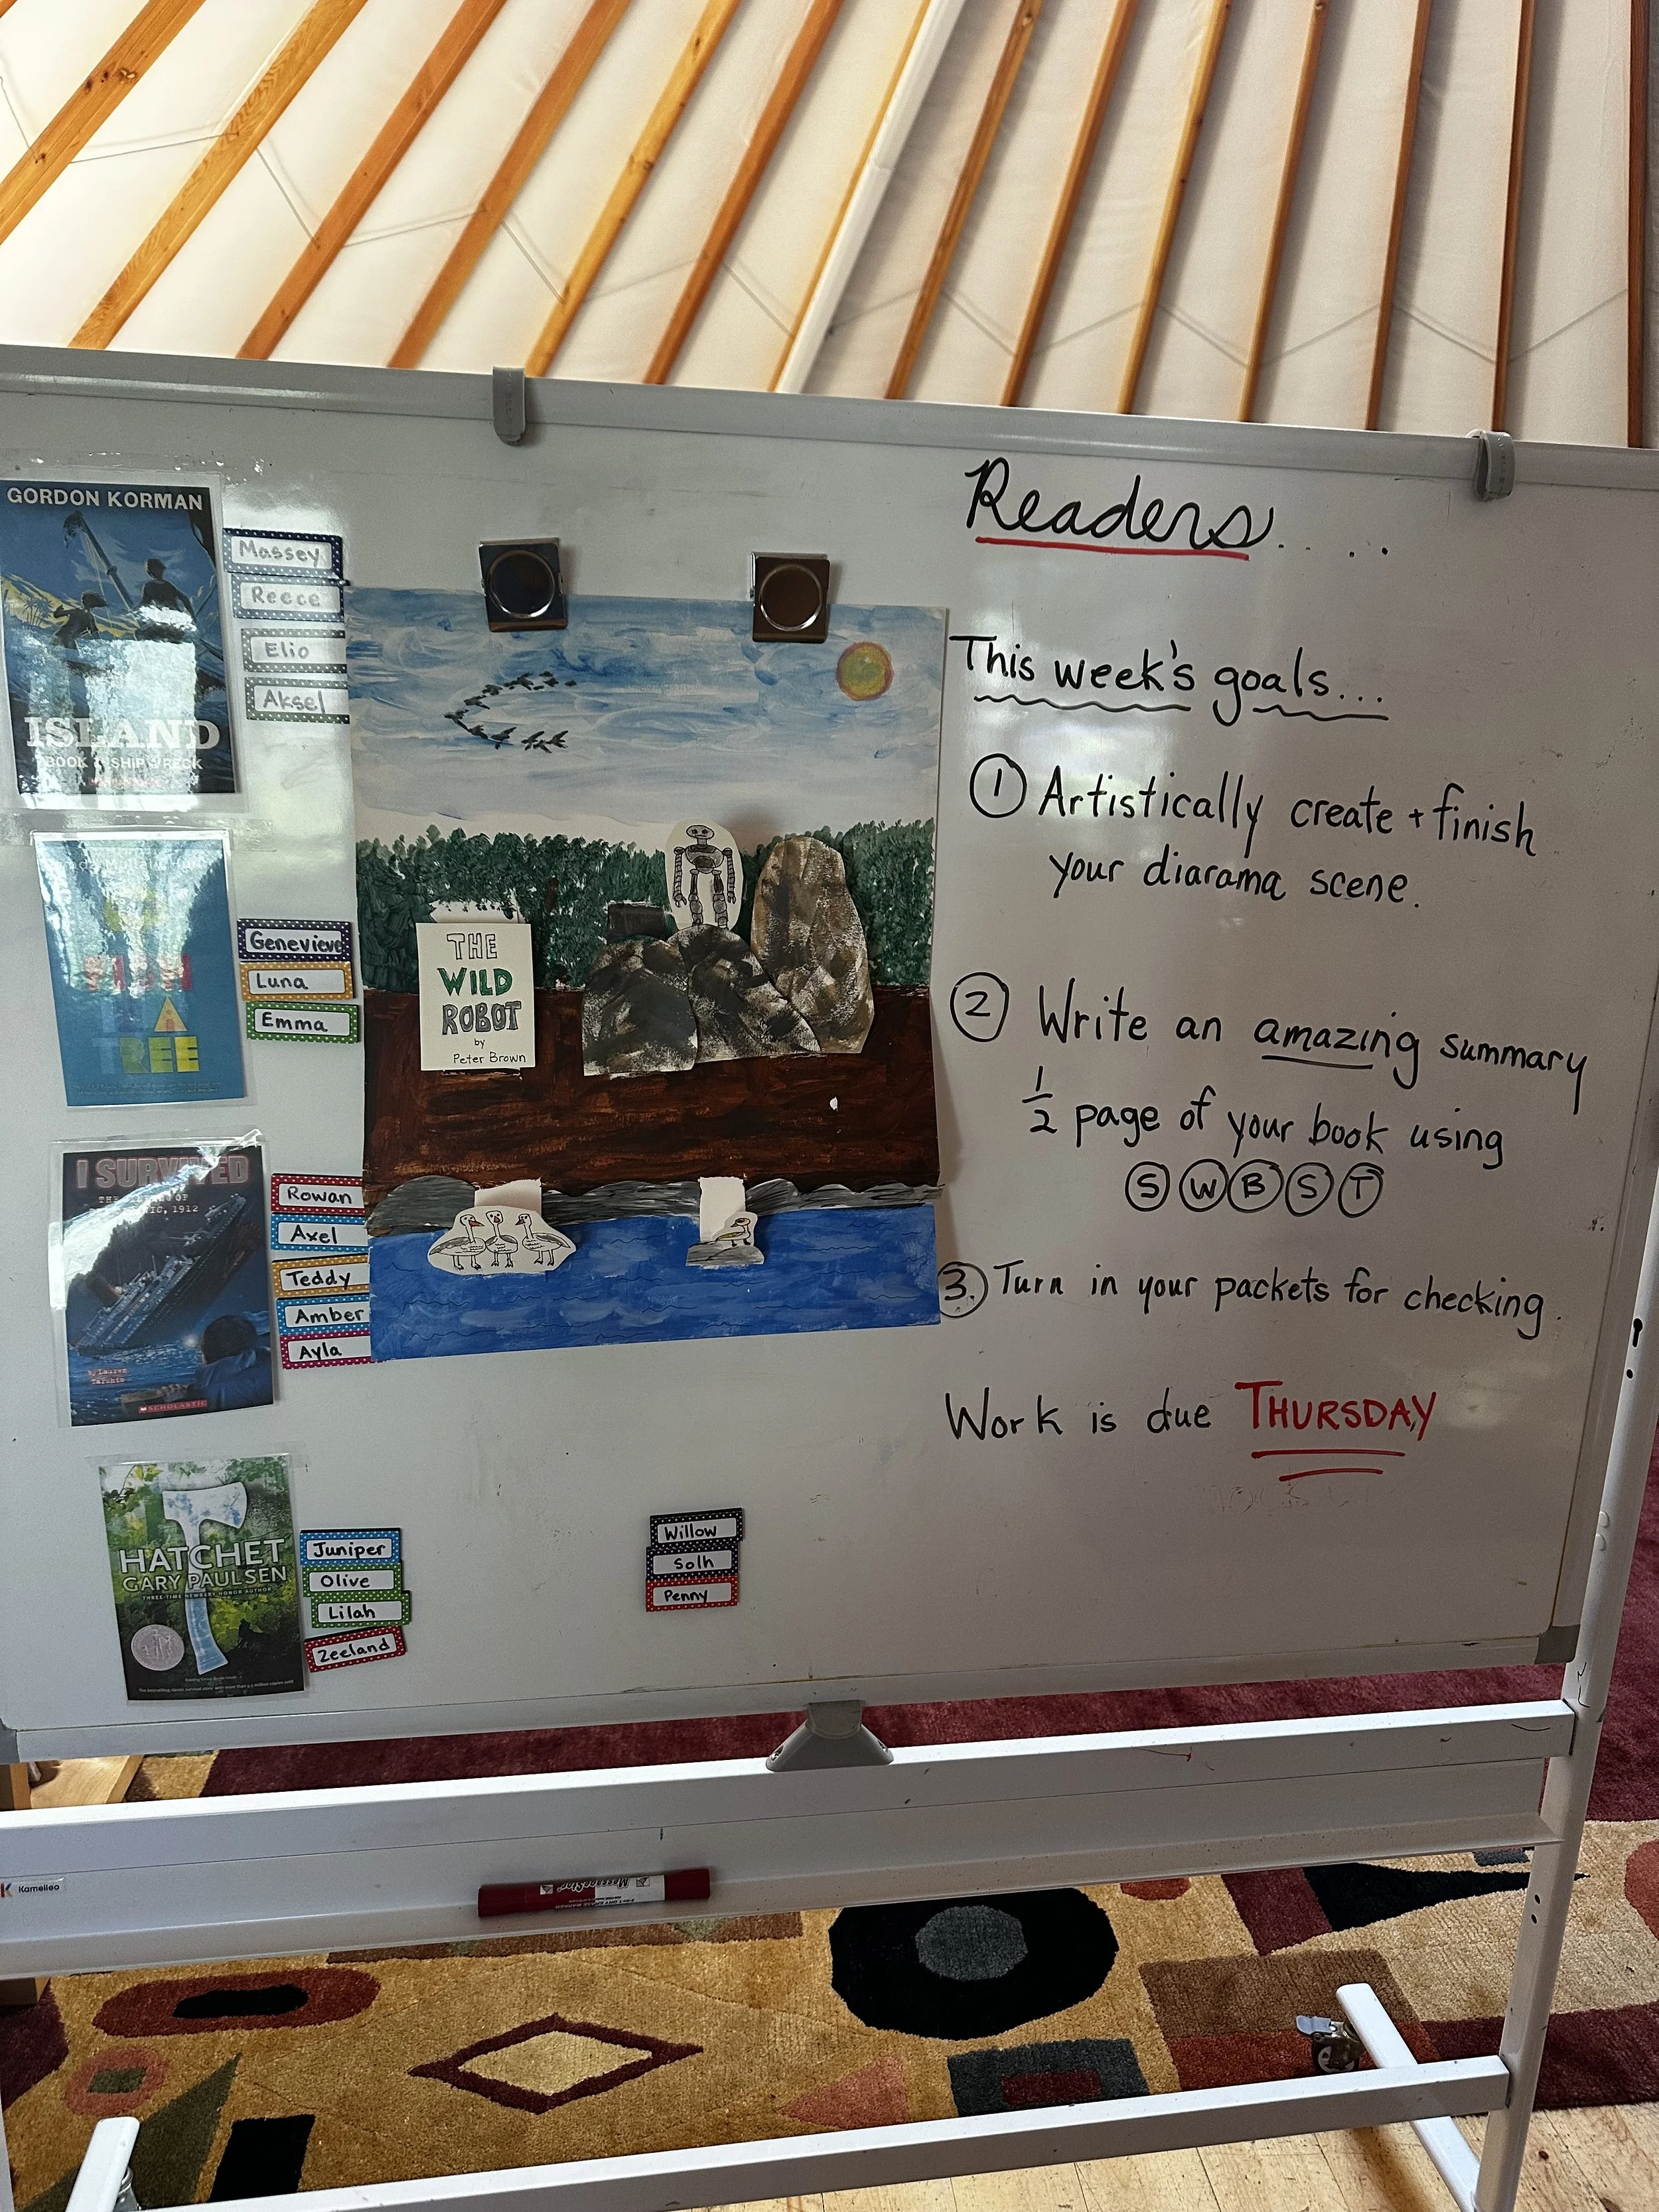 GORDON KORMAN
ISLAND
Massey
Reece
Elio
Aksel
TREE
Genevieve
Luna
Emma
I SURVIVED
1912
by Lauren
Tarshis
SCHOLASTIC
Rowan
Axel
Teddy
Amber
Ayla
HATCHET
GARY PAULSEN
THREE-TIME NEWBERY HONOR AUTHOR
Juniper
Olive
Lilah
Zeeland
THE
WILD
ROBOT
by
Peter Brown
Willow
Solh
Penny
Readers.....
This week's goals...
1 Artistically create + finish
your diarama scene.
2 Write an amazing summary
1/2 page of your book using
S W B S T
3. Turn in your packets for checking.
Work is due THURSDAY
Kamelleo